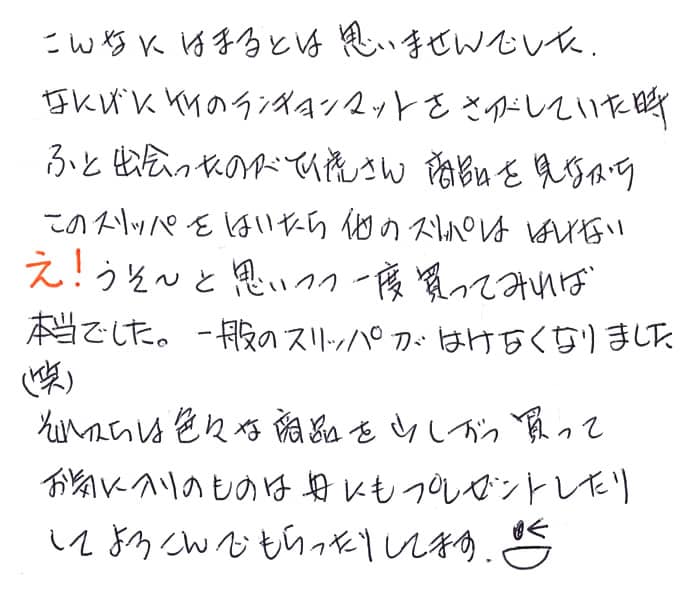 こんなに はまるとは 思いませんでした.
なにげに 竹のランチョンマットを さがしていた時
ふと 出会ったのが 竹虎さん 商品を 見ながら
このスリッパを はいたら 他のスリッパは はけない
え! うそ〜と 思いつつ 一度 買ってみれば
本当でした。一般のスリッパが はけなくなりました
(笑)
それからは 色々な 商品を 少しずつ 買って
お気に入りのものは 母にも プレゼントしたり
して よろこんで もらったりしてます.